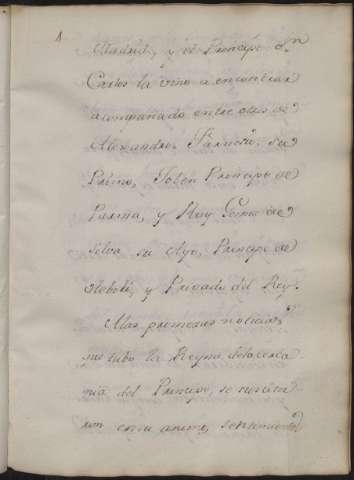 Madrid, y el Principe Dn
Carlos la vino a encontrar
acompañado entre otros de
Alexandro Farnesio, su
Primo, Joben Principe de
Parma, y Ruy Gomez de
Silva su Ayo, Principe de
Eboli, y Privado del Rey.
A las primeras noticias,
que tubo la Reyna de la cerca
nia del Principe, se
ron en su animo, sentimientos